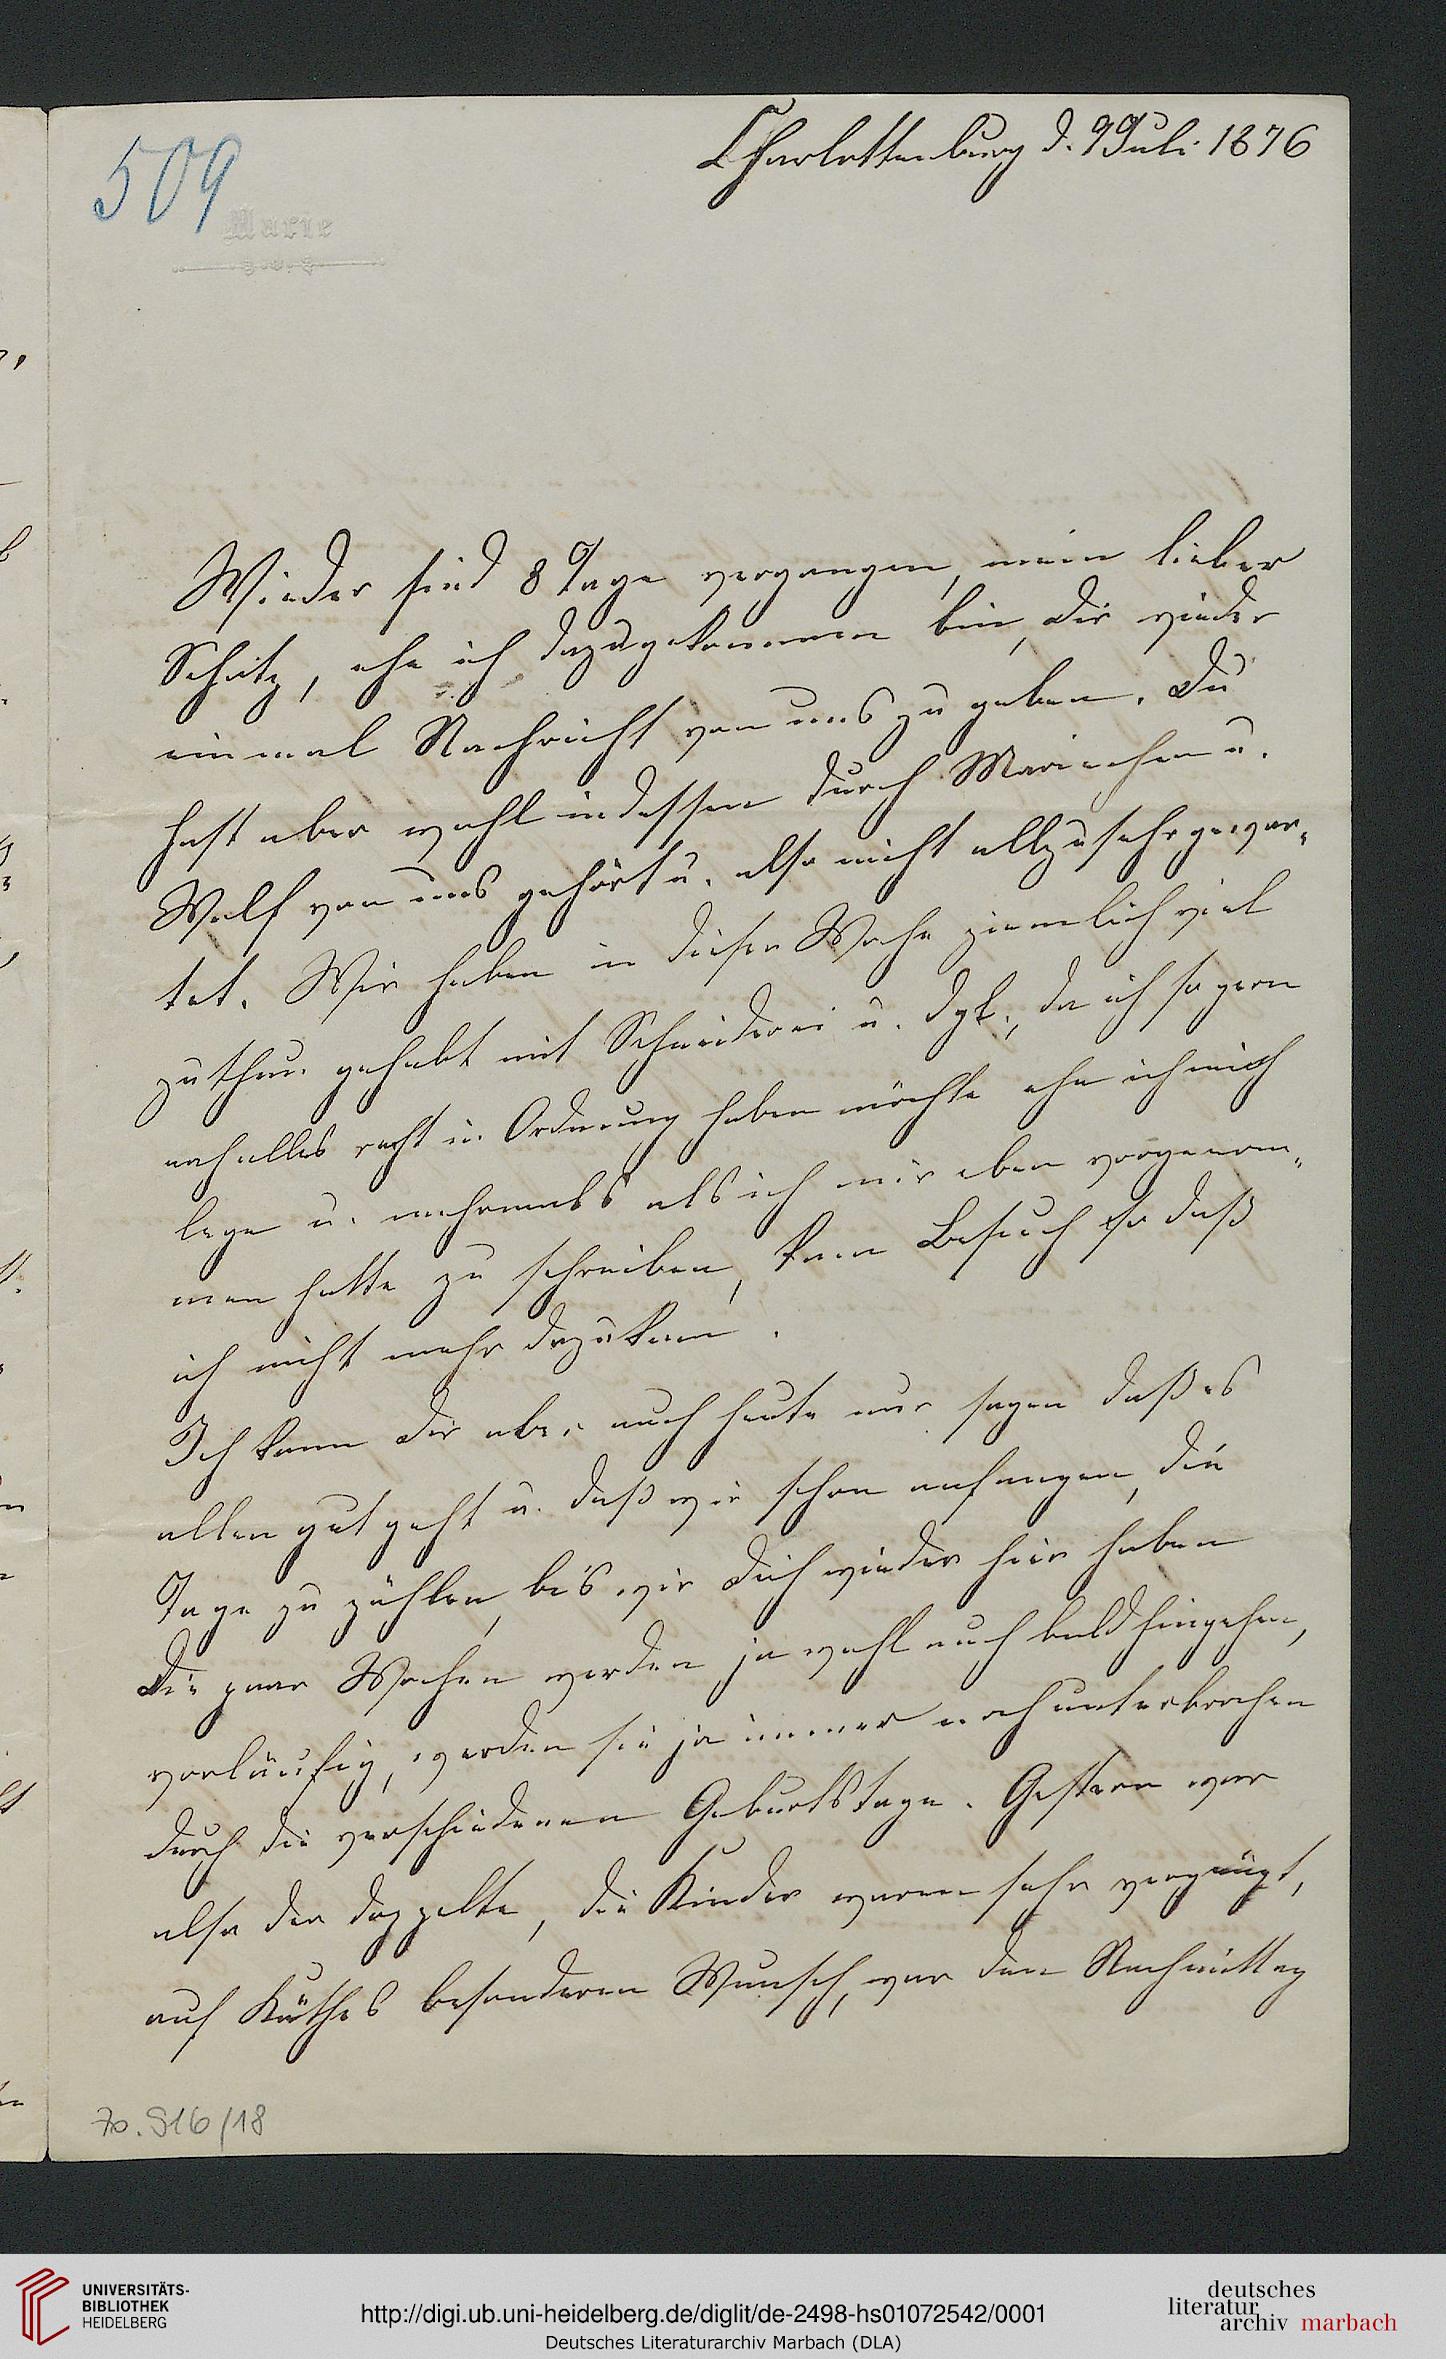 509
Marie
Charlottenburg d. 9 Juli 1876
Wieder sind 8 Tage vergangen, mein lieber
Schatz, ehe ich dazugekommen bin, Dir wieder
einmal Nachricht von uns zu geben. Du
hast aber wohl indessen durch Mariechen u.
Wolf von uns gehört u. also nicht allzusehr gewar-
tet. Wir haben in dieser Woche ziemlich viel
zu thun gehabt mit Schneiderei u. dgl., da ich so gern
noch alles recht in Ordnung haben möchte ehe ich mich
lege u. mehrmals als ich mir eben vorgenom-
men hatte zu schreiben, kam Besuch so daß
ich nicht mehr dazu kam.
Ich kann Dir aber auch heute nur sagen daß es
allen gut geht u. daß wir schon anfangen, die
Tage zu zählen, bis wir Dich wieder hier haben
Die paar Wochen werden ja wohl auch bald hingehen,
vorläufig, werden sie ja immer noch unterbrochen
durch die verschiedenen Geburtstage. Gestern war
also der doppelte, die Kinder waren sehr vergnügt,
auf Käthes besonderen Wunsch, war den Nachmittag
70.916/18
UNIVERSITÄTS-
BIBLIOTHEK
HEIDELBERG
http://digi.ub.uni-heidelberg.de/diglit/de-2498-hs01072542/0001
Deutsches Literaturarchiv Marbach (DLA)
deutsches
literatur
archiv marbach